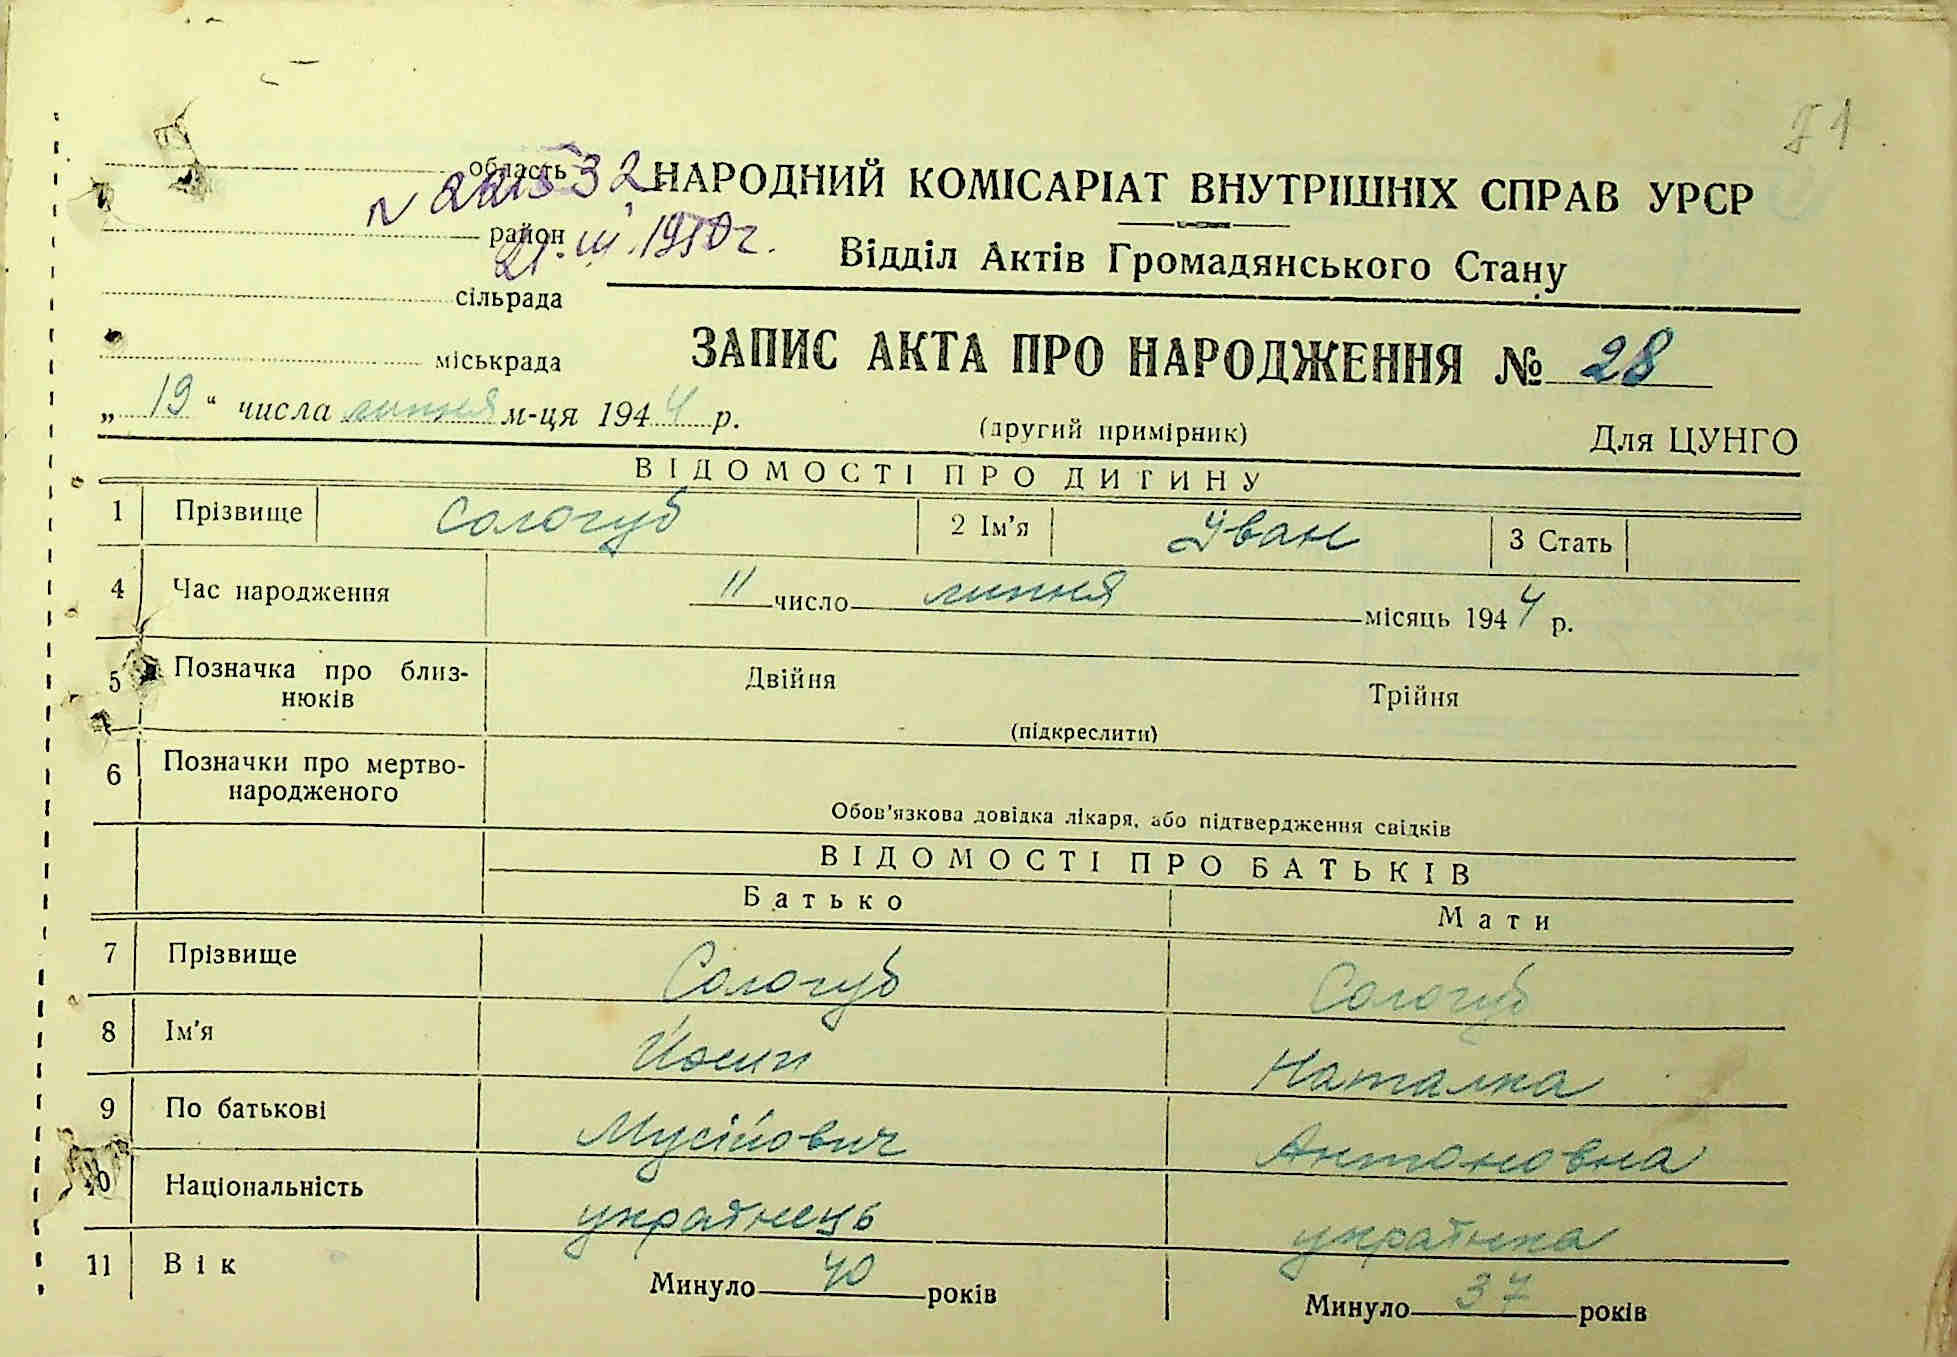 71
область
НАРОДНИЙ КОМІСАРІАТ ВНУТРІШНІХ СПРАВ УРСР
район
21.III.1950 г.
Відділ Актів Громадянського Стану
сільрада
міськрада
ЗАПИС АКТА ПРО НАРОДЖЕННЯ № 28
„ 19 “ числа липня м-ця 1944 р.
(другий примірник)
Для ЦУНГО
ВІДОМОСТІ ПРО ДИТИНУ
1 Прізвище Сологуб 2 Ім'я Іван 3 Стать
4 Час народження 11 число липня місяць 1944 р.
5 Позначка про близ-
нюків
Двійня Трійня
(підкреслити)
6 Позначки про мертво-
народженого
Обов'язкова довідка лікаря, або підтвердження свідків
ВІДОМОСТІ ПРО БАТЬКІВ
Батько Мати
7 Прізвище Сологуб Сологуб
8 Ім'я Йосип Наталка
9 По батькові Мусійович Антоновна
10 Національність українець українка
11 Вік Минуло 40 років Минуло 37 років